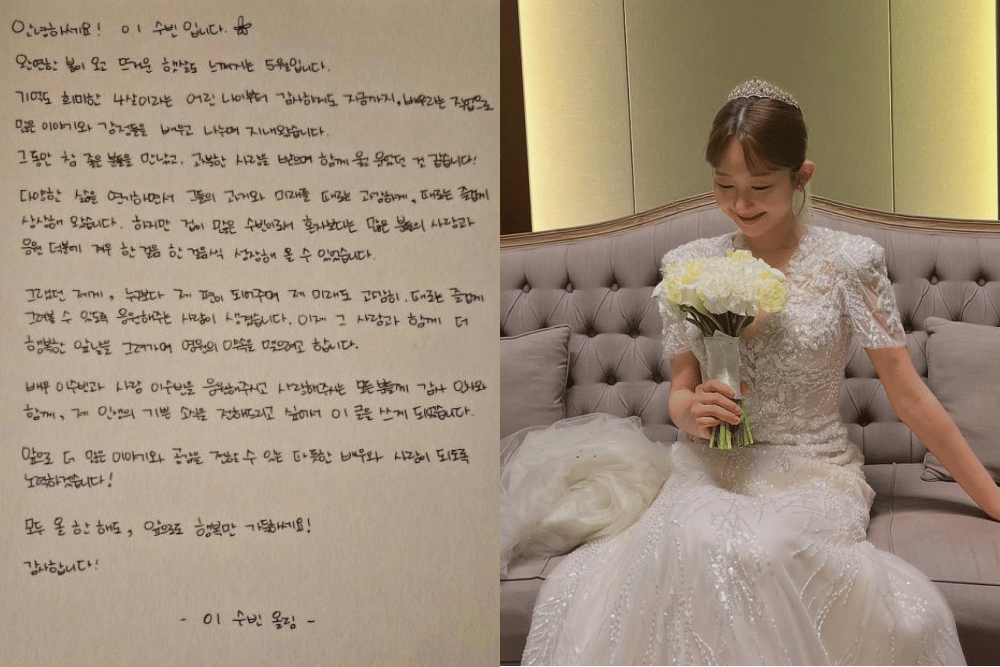 안녕하세요! 이 수빈 입니다.
완연한 봄이 오고 뜨거운 햇살도 느껴지는 5월입니다.
기억도 희미한 4살이라는 어린 나이부터 감사하게도 지금까지, 배우라는 직업으로
많은 이야기와 감정들을 배우고 나누며 지내왔습니다.
그동안 참 좋은 분들을 만났고, 과분한 사랑을 받으며 함께 울고 웃었던 것 같습니다!
다양한 삶을 연기하면서 그들의 과거와 미래를 때로는 고민하며, 때로는 즐겁게
상상해 왔습니다. 하지만 겁이 많은 수빈이로서 혼자보다는 많은 분들의 사랑과
응원 덕분에 겨우 한 걸음 한 걸음씩 성장해 올 수 있었습니다.
그랬던 제게, 누구보다 제 편이 되어주며 제 미래도 과감히, 때로는 즐겁게
그려볼 수 있도록 응원해주는 사람이 생겼습니다. 이제 그 사람과 함께 더
행복한 앞날을 그려가며 영원의 약속을 맺으려고 합니다.
배우 이수빈과 사람 이수빈을 응원해주시고 사랑해주시는 모든 분들께 감사 인사와
함께, 제 인생의 기쁜 소식을 전해드리고 싶어서 이 글을 쓰게 되었습니다.
앞으로 더 많은 이야기와 공감을 전할 수 있는 따뜻한 배우와 사람이 되도록
노력하겠습니다!
모두 올 한 해도, 앞으로도 행복만 가득하세요!
감사합니다!
- 이 수빈 올림 -